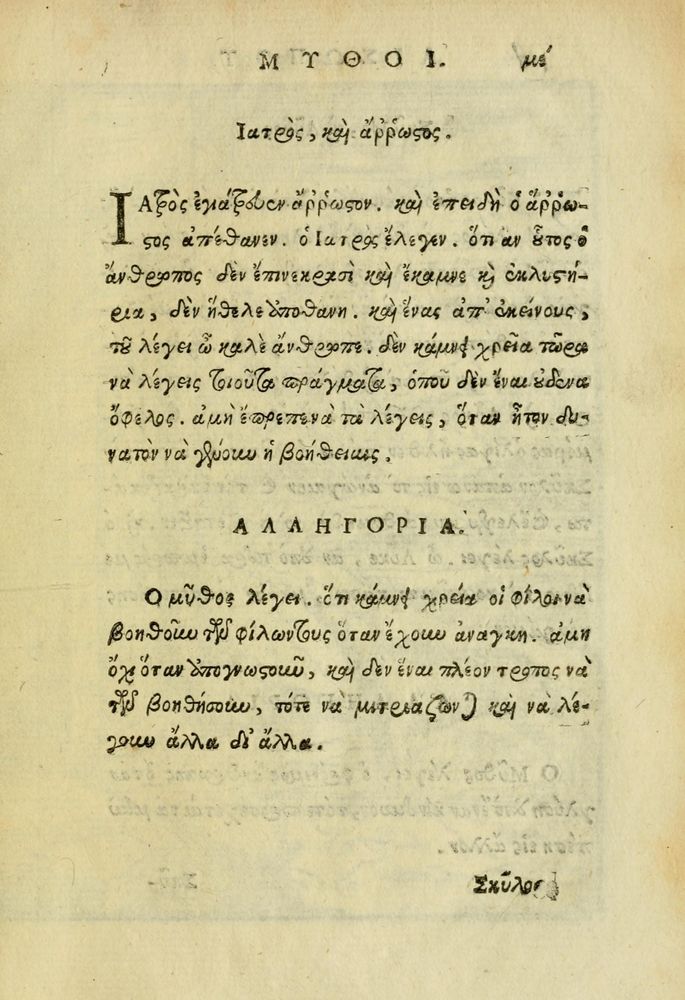 ΜΥΘΟΙ. με
Ιατρὸς, καὶ ἄῤῥωστος.
ΙΑτρὸς ἐγιάτρευεν ἄῤῥωστον. καὶ ἐπειδὴ ὁ ἄῤῥω-
στος ἀπέθανεν. ὁ Ιατρὸς ἔλεγεν. ὅτι αν οὗτος ὁ
ἄνθρωπος δὲν ἔπινε κρασὶ καὶ ἔκαμνε καὶ ἐκλυστή-
ρια, δὲν ἤθελε ἀποθανη. καὶ ἕνας ἀπ' ἐκείνους,
τοῦ λέγει ὦ καλὲ ἄνθρωπε. δὲν κάμνει χρεῖα τῶρα
νὰ λέγεις τιοῦτα πράγματα, ὁποῦ δὲν ἔναι οὐδενα
ὄφελος. ἀμὴ ἔπρεπε νὰ τὰ λέγεις, ὅταν ἦτον δυ-
νατὸν νὰ ἡ βοήθειαις.
ΑΛΛΗΓΟΡΙΑ.
Ο μῦθος λέγει. ὅτι κάμνει χρεία οἱ φίλοι νὰ
βοηθοῦν τῶν φίλων τους ὅταν ἔχουν ἀναγκη. ἀμη
ὄχι ὅταν ἀπογνωστοῦν, καὶ δεν ἔναι πλέον τροπος νὰ
τῶν βοηθήσουν, τότε νὰ μιτριαζων) καὶ νὰ λέ-
γουν ἄλλα δι' ἄλλα.
Σκῦλος